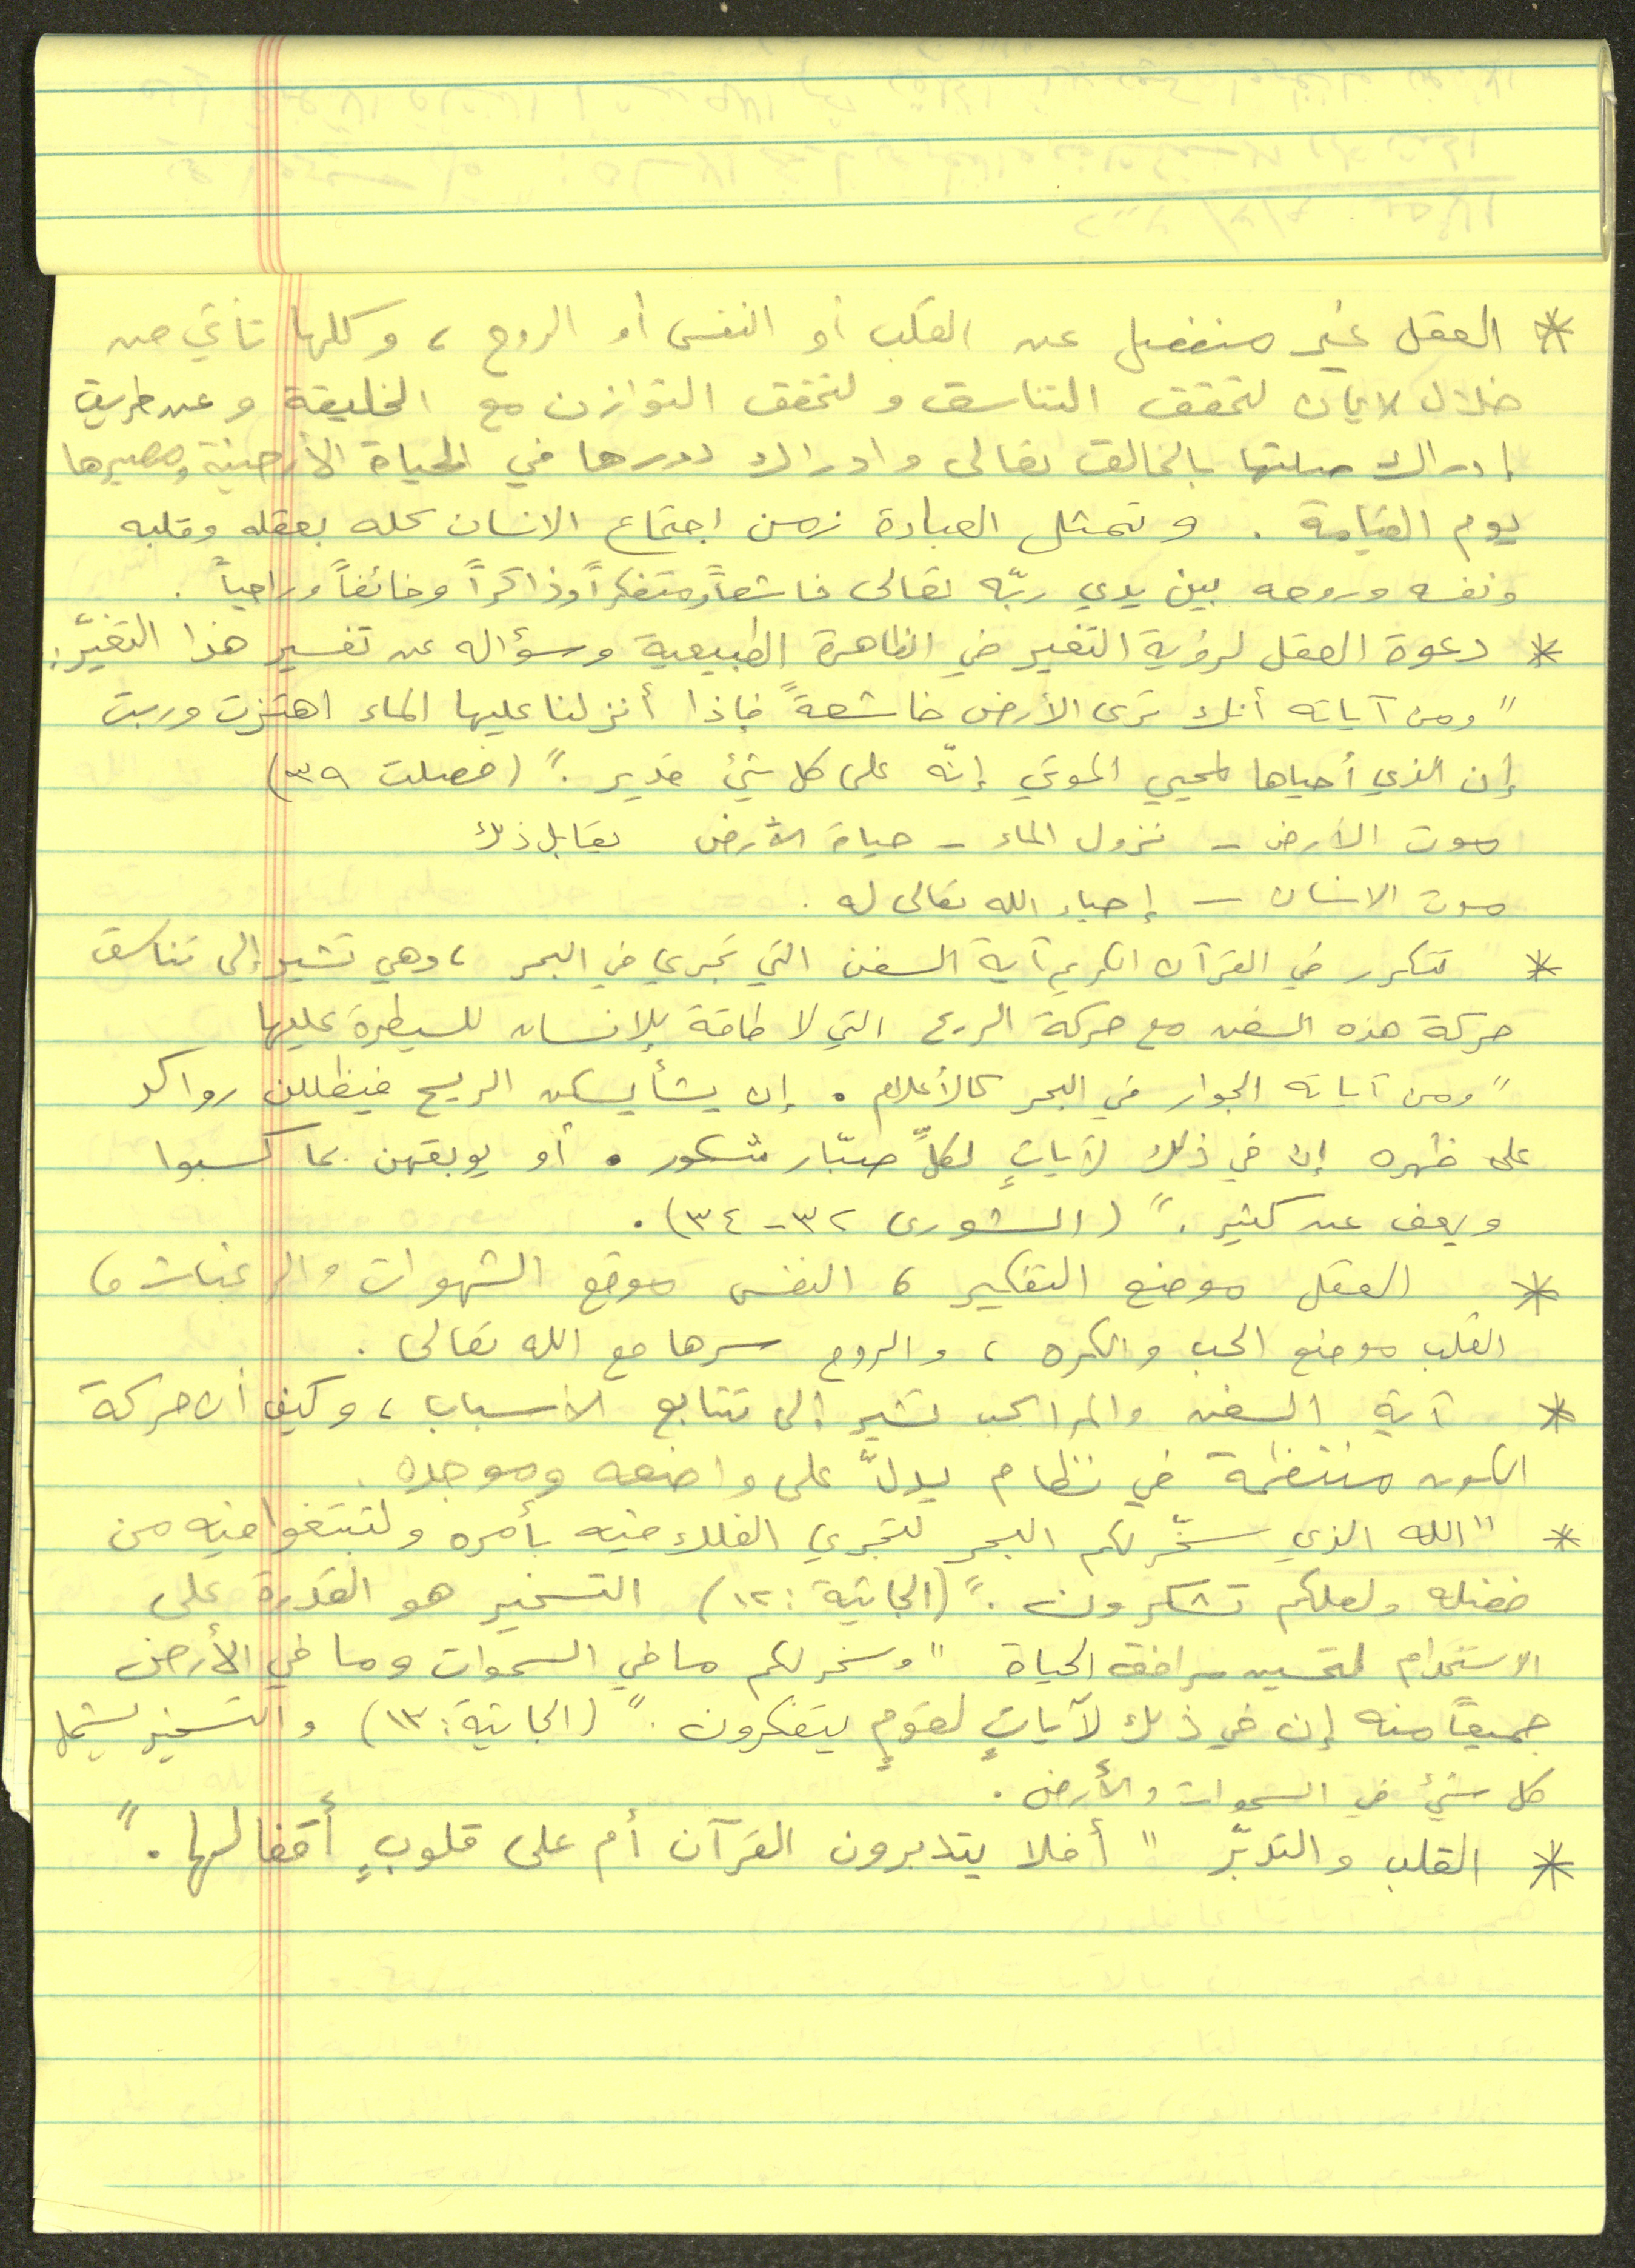 * العقل غير منفصل عن القلب أو النفس أو الروح ، وكلها تأتي من
خلال الايمان لتحقق التناسق ولتحقق التوازن مع الخليقة وعن طريق
إدراك صلتها بالخالق تعالى وادراك دورها في الحياة الأرضية ومصيرها
يوم القيامة . وتمثل العبادة زمن اجتماع الانسان كله بعقله وقلبه
ونفسه وروحه بين يدي ربّه تعالى خاشعاً ومتفكراً وذاكراً وخائفاً وراجياً .
* دعوة العقل لرؤية التغير في الظاهرة الطبيعية وسؤاله عن تفسير هذا التغيّر :
" ومن آياته أنك ترى الأرض خاشعةً فإذا أنزلنا عليها الماء اهتزت وربت
إن الذي أحياها لمحيي الموتي إنّه على كل شيئ قدير . " (فصلت ٣٩)
موت الأرض - نزول الماء - حياة الأرض يقابل ذلك
موت الانسان - إحياء الله تعالى له .
* تتكرر في القرآن الكريم آية السفن التي تجري في البحر ، وهي تشير إلى تناسق
حركة هذه السفن مع حركة الريح التي لا طاقة للإنسان للسيطرة عليها
" ومن آياته الجوار في البحر كالأعلام . إن يشأ يسكن الريح فيظللن رواكد
على ظهره إن في ذلك لآياتٍ لكلِّ صبّار شكور . أو يوبقهن بما كسبوا
ويعف عن كثير . " (الشورى ٣٢-٣٤) .
* العقل موضع التفكير ، النفس موقع الشهوات والرغبات ،
القلب موضع الحب والكره ، والروح سرها مع الله تعالى .
* آية السفن والمراكب تشير إلى تتابع الأسباب ، وكيف أن حركة
الكون منتظمة في نظام يدلّ على واضعه وموجده .
* " الله الذي سخّر لكم البحر لتجري الفلك فيه بأمره ولتبتغوا فيه من
فضله ولعلكم تشكرون . " (الجاثية : ١٢) التسخير هو القدرة على
الاستخدام لتحسين مرافق الحياة " وسخر لكم ما في السموات وما في الأرض
جميعاً منه إن في ذلك لآياتٍ لقومٍ يتفكرون . " (الجاثية : ١٣) والتسخير يشمل
كل شيئ في السموات والأرض .
* القلب والتدبّر " أفلا يتدبرون القرآن أم على قلوبٍ أقفالها . "